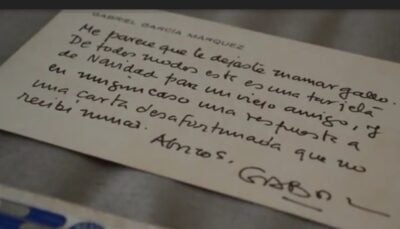 GABRIEL GARCÍA MÁRQUEZ
Me parece que te dejaste mamar gallo.
De todos modos este es una tarjeta
de Navidad para un viejo amigo, y
en ningun caso una respuesta a
una carta desafortunada que no
recibí nunca.
Abrazos,
GABO